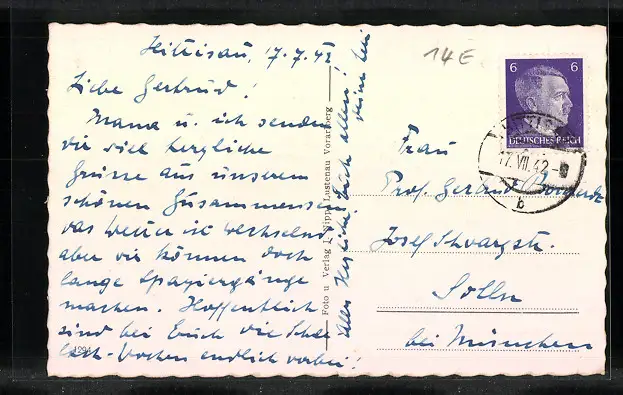 Hittisau, 17.7.42
Liebe Gertrud!
Mama u. ich senden
dir viel herzliche
Grüsse aus unserem
schönen Zusammensein
das Wetter ist wechselnd
aber wir können doch
lange Spaziergänge
machen. Hoffentlich
sind bei Euch die
-Wochen endlich vorbei!
Alles Herzliche Euch allen!
14 E
6 6
DEUTSCHES REICH
17.VII.42
b
Frau
Prof. Gertrud
Josef Schwarzstr.
Solln
bei München
Foto u Verlag J. Nipp, Lustenau Vorarlberg
4294